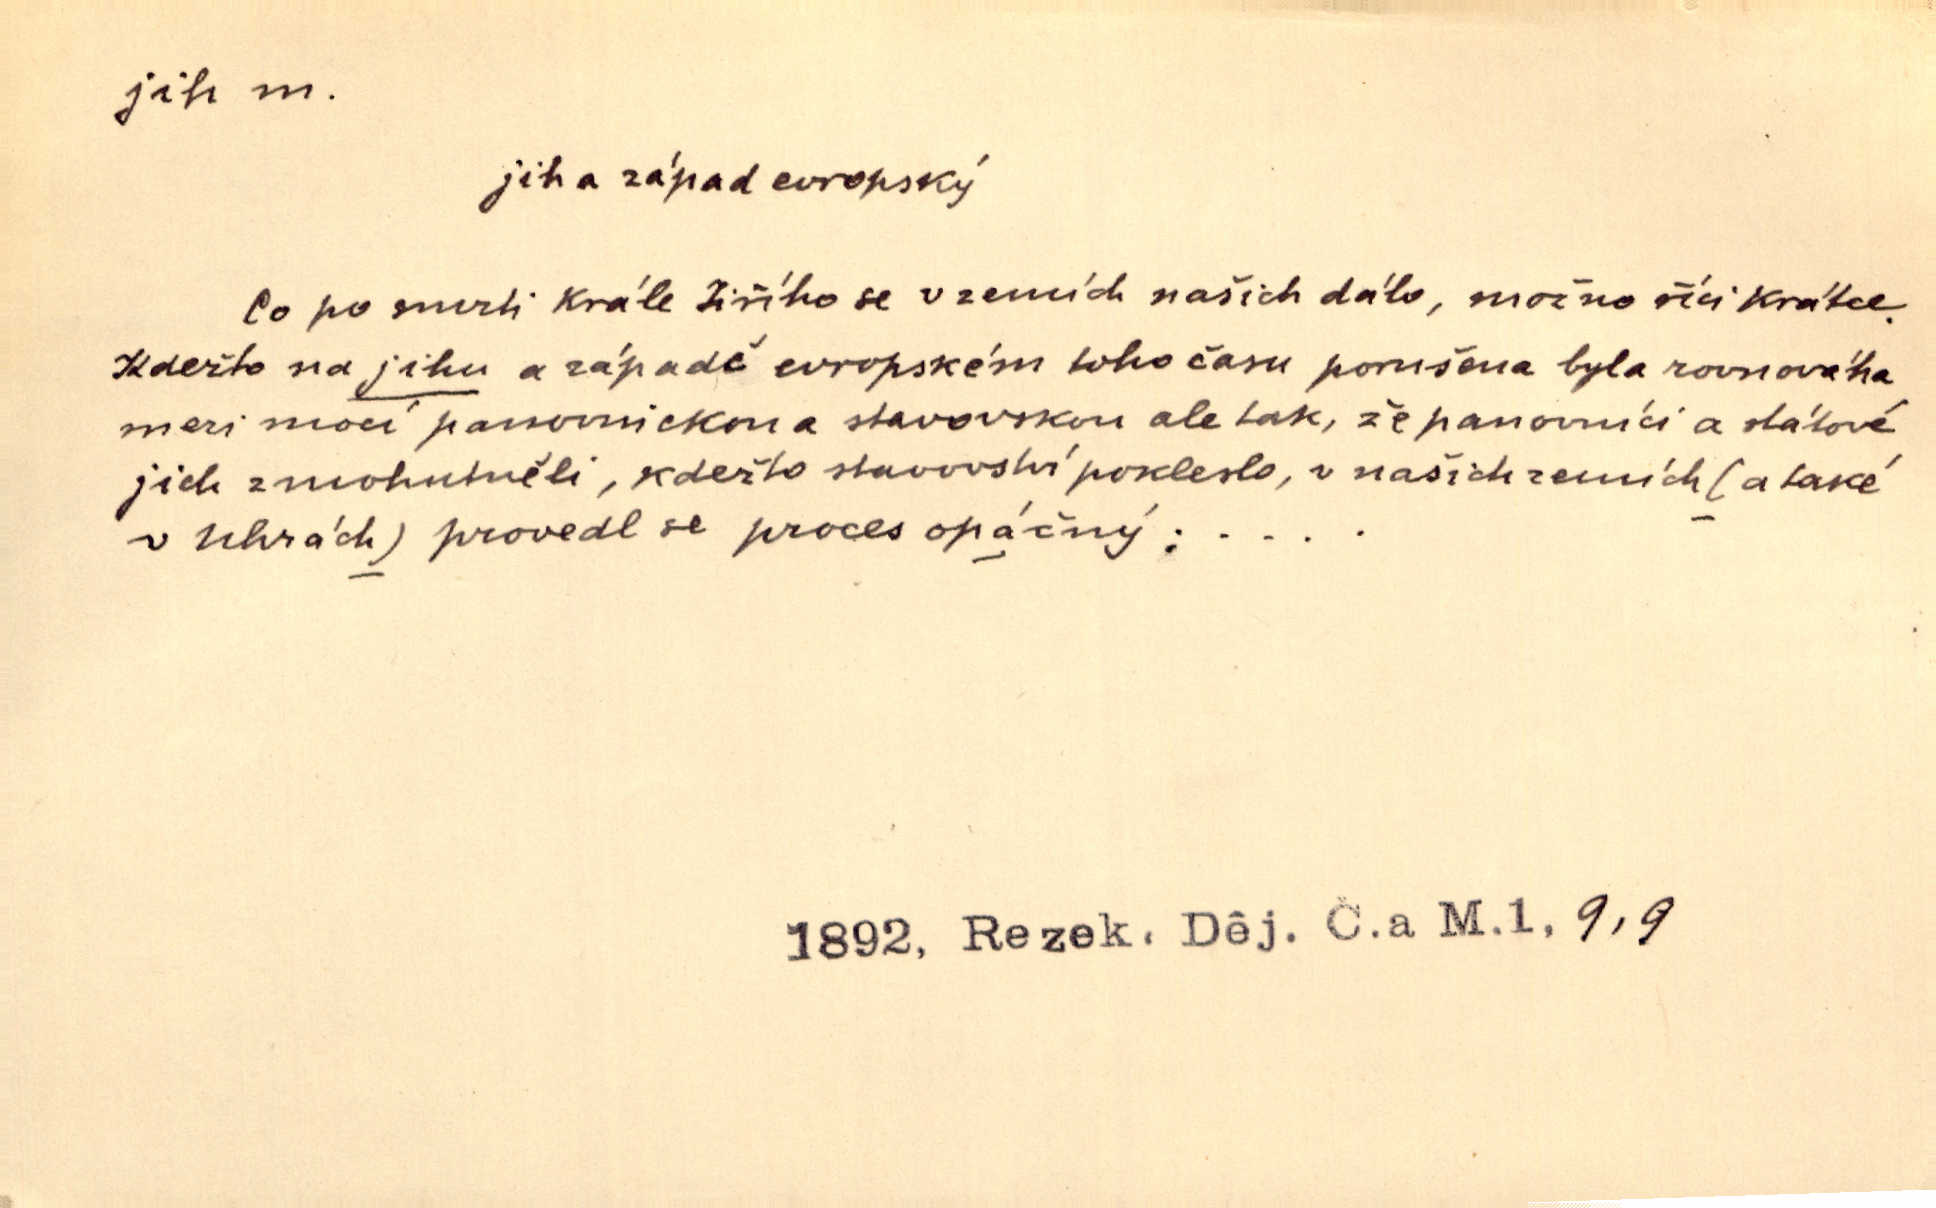 jih m.
jih a západ evropský
Co po smrti krále Jiřího se v zemích našich dálo, možno říci krátce.
Kdežto na jihu a západě evropském toho času porušena byla rovnováha
mezi mocí panovnickou a stavovskou ale tak, že panovníci a státové
jich zmohutněli, kdežto stavovství pokleslo, v našich zemích (a také
v Uhrách) provedl se proces opáčný; . . . .
1892, Rezek. Děj. Č.a M.1, 9,9